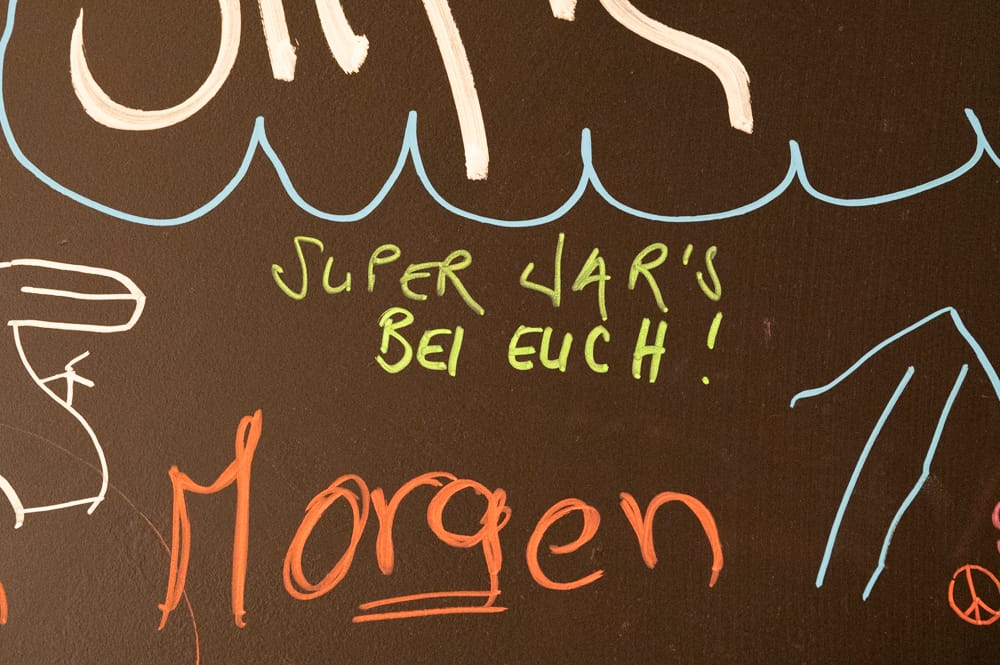 SUPER WAR'S
BEI EUCH!
Morgen